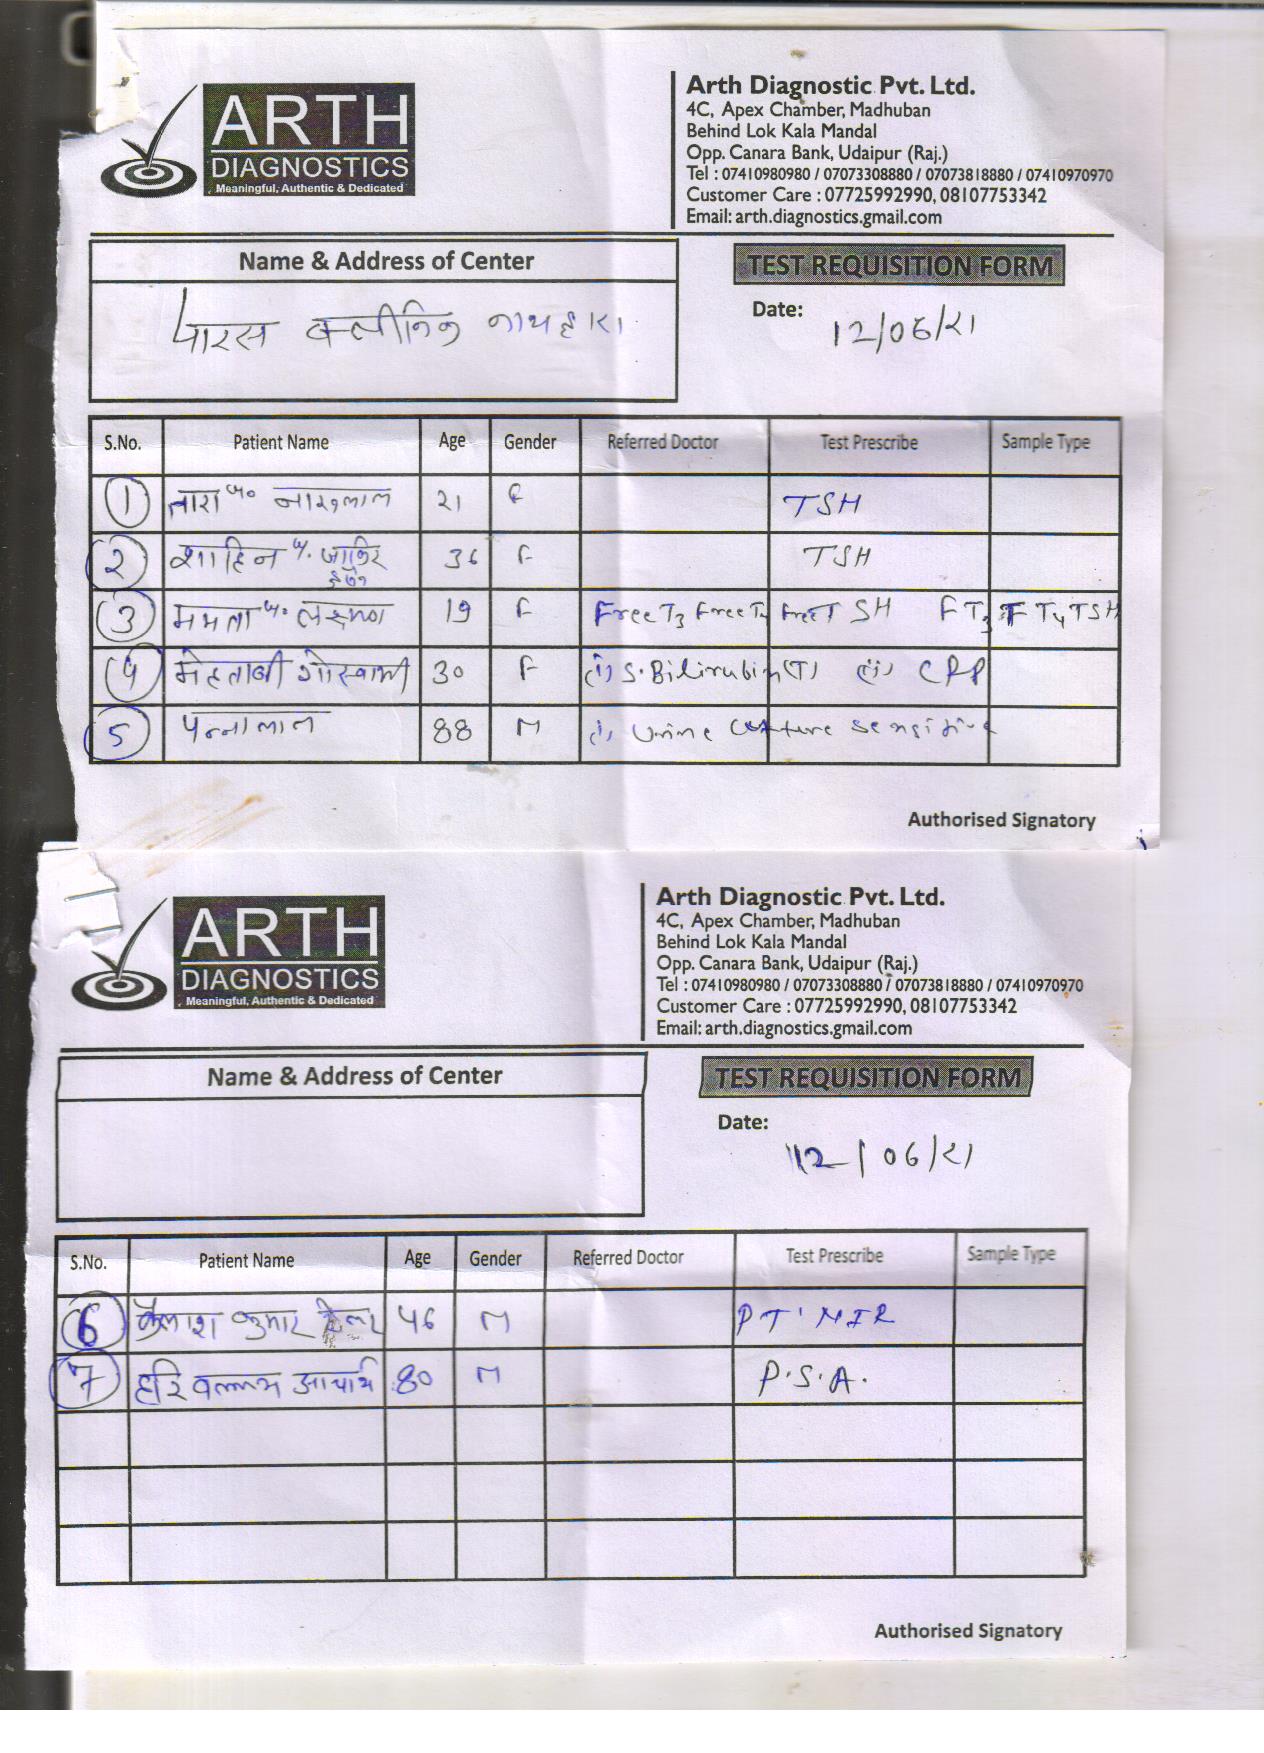 ARTH
DIAGNOSTICS
Meaningful, Authentic & Dedicated
Arth Diagnostic Pvt. Ltd.
4C, Apex Chamber, Madhuban
Behind Lok Kala Mandal
Opp. Canara Bank, Udaipur (Raj.)
Tel : 07410980980 / 07073308880 / 07073818880 / 07410970970
Customer Care : 07725992990, 08107753342
Email: arth.diagnostics.gmail.com
Name & Address of Center
TEST REQUISITION FORM
पारस क्लीनिक
Date: 12/06/21
S.No. Patient Name Age Gender Referred Doctor Test Prescribe Sample Type
1 तारा 21 F TSH
2 शाहिन 36 F TSH
3 ममता 19 F Free T3 Free T4 Free TSH FT3 FT4 TSH
4 मेहताबी गोस्वामी 30 F (i) S. Bilirubin (T) (ii) CRP
5 पन्नालाल 88 M (i) Urine Culture Sensitive
Authorised Signatory
ARTH
DIAGNOSTICS
Meaningful, Authentic & Dedicated
Arth Diagnostic Pvt. Ltd.
4C, Apex Chamber, Madhuban
Behind Lok Kala Mandal
Opp. Canara Bank, Udaipur (Raj.)
Tel : 07410980980 / 07073308880 / 07073818880 / 07410970970
Customer Care : 07725992990, 08107753342
Email: arth.diagnostics.gmail.com
Name & Address of Center
TEST REQUISITION FORM
Date: 12/06/21
S.No. Patient Name Age Gender Referred Doctor Test Prescribe Sample Type
6 कैलाश कुमार 46 M
7 हरि वल्लभ आचार्य 80 M P.S.A.
Authorised Signatory